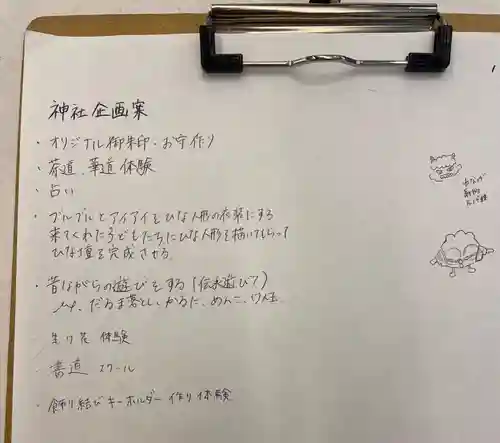 神社企画案
・オリジナル御朱印・お守作り
・茶道、華道体験
・占い
・ブルブルとアイアイをひな人形の衣装にする
来てくれた子どもたちにひな人形を描いてもらって
ひな壇を完成させる。
・昔ながらの遊びをする(伝承遊び?)
だるま落とし、かるた、めんこ、
生け花 体験
・書道 スクール
・飾り結びキーホルダー作り体験